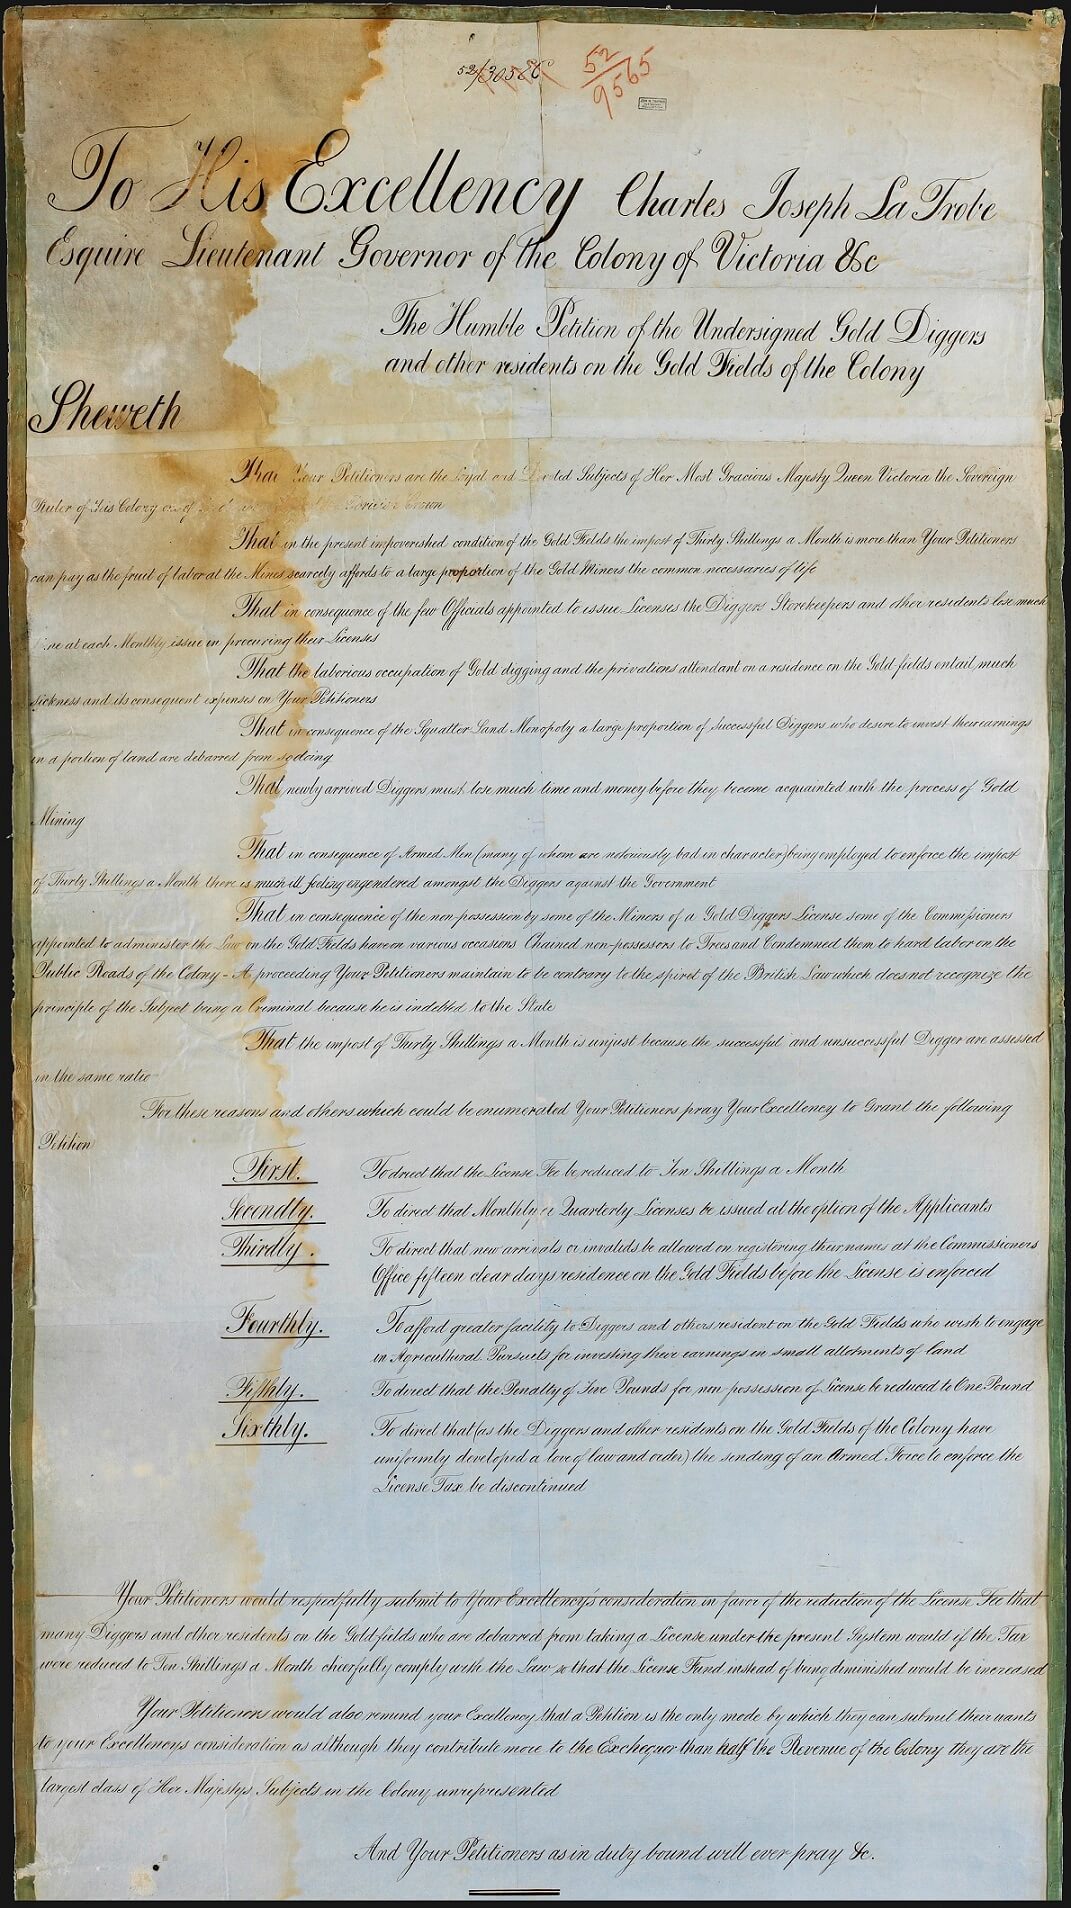 52/
52
9565
To His Excellency Charles Joseph La Trobe
Esquire Lieutenant Governor of the Colony of Victoria &c
The Humble Petition of the Undersigned Gold Diggers
and other residents on the Gold Fields of the Colony
Sheweth
That Your Petitioners are the Loyal and Devoted Subjects of Her Most Gracious Majesty Queen Victoria the Sovereign
Ruler of this Colony one of the Crown
That in the present impoverished condition of the Gold Fields the impost of Thirty Shillings a Month is more than Your Petitioners
can pay as the fruit of labor at the Mines scarcely affords to a large proportion of the Gold Miners the common necessaries of life
That in consequence of the few Officials appointed to issue Licenses the Diggers Storekeepers and other residents lose much
time at each Monthly issue in procuring their Licenses
That the laborious occupation of Gold digging and the privations attendant on a residence on the Gold fields entail much
sickness and its consequent expenses on Your Petitioners
That in consequence of the Squatter Land Monopoly a large proportion of Successful Diggers who desire to invest their earnings
in a portion of land are debarred from so doing
That newly arrived Diggers must lose much time and money before they become acquainted with the process of Gold
Mining
That in consequence of Armed Men (many of whom are notoriously bad in character) being employed to enforce the impost
of Thirty Shillings a Month there is much ill feeling engendered amongst the Diggers against the Government
That in consequence of the non-possession by some of the Miners of a Gold Diggers License some of the Commissioners
appointed to administer the Law on the Gold Fields have on various occasions Chained non-possessors to Trees and Condemned them to hard labor on the
Public Roads of the Colony - A proceeding Your Petitioners maintain to be contrary to the spirit of the British Law which does not recognize the
principle of the Subject being a Criminal because he is indebted to the State
That the impost of Thirty Shillings a Month is unjust because the successful and unsuccessful Digger are assessed
in the same ratio
For these reasons and others which could be enumerated Your Petitioners pray Your Excellency to Grant the following
Petition
First. To direct that the License Fee be reduced to Ten Shillings a Month
Secondly. To direct that Monthly or Quarterly Licenses be issued at the option of the Applicants
Thirdly. To direct that new arrivals or invalids be allowed on registering their names at the Commissioners
Office fifteen clear days residence on the Gold Fields before the License is enforced
Fourthly. To afford greater facility to Diggers and others resident on the Gold Fields who wish to engage
in Agricultural Pursuits for investing their earnings in small allotments of land
Fifthly. To direct that the Penalty of Five Pounds for non-possession of License be reduced to One Pound
Sixthly. To direct that (as the Diggers and other residents on the Gold Fields of the Colony have
uniformly developed a love of law and order) the sending of an Armed Force to enforce the
License Tax be discontinued
Your Petitioners would respectfully submit to Your Excellency's consideration in favor of the reduction of the License Fee that
many Diggers and other residents on the Gold fields who are debarred from taking a License under the present System would if the Tax
were reduced to Ten Shillings a Month cheerfully comply with the Law so that the License Fund instead of being diminished would be increased
Your Petitioners would also remind your Excellency that a Petition is the only mode by which they can submit their wants
to your Excellency's consideration as although they contribute more to the Exchequer than half the Revenue of the Colony they are the
largest class of Her Majestys Subjects in the Colony unrepresented
And Your Petitioners as in duty bound will ever pray &c.